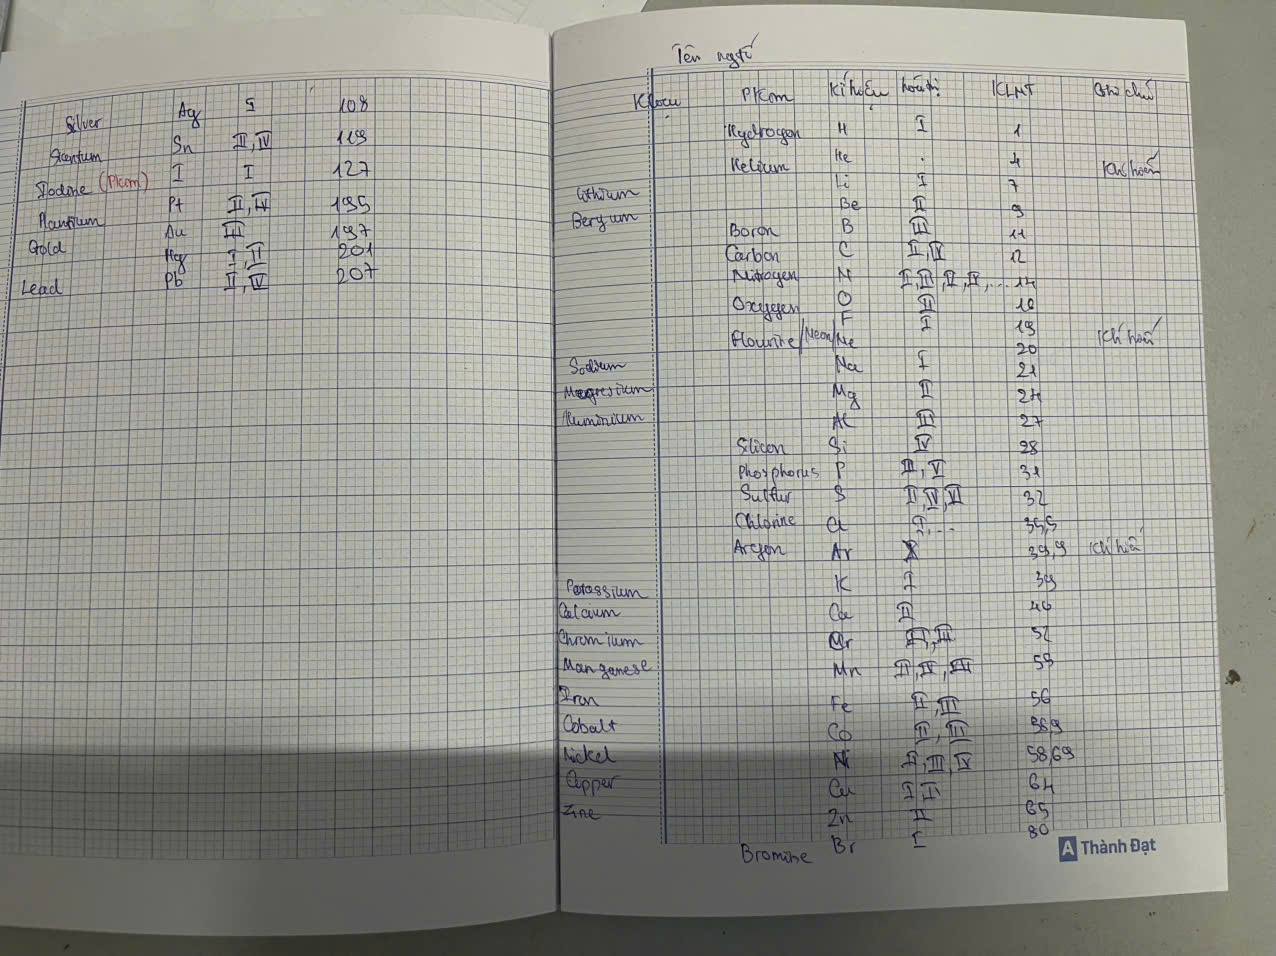 Silver Ag I 108
Stantum Sn II, IV 119
Iodine (Pkim) I I 127
Plantium Pt II, IV 195
Gold Au III 197
Hg I, II 201
Lead Pb II, IV 207
Tên ngtố
Kloại Pkim Kí hiệu hóa trị KLNT Ghi chú
Hydrogen H I 1
Helium He . 4 Khí hiếm
Lithium Li I 7
Beryium Be II 9
Boron B III 11
Carbon C II, IV 12
Nitrogen N I, III, II, IV, ... 14
Oxygen O II 16
Flourine/Neon/ F I 19
Ne 20 Khí hiếm
Sodium Na I 21
Magnesium Mg II 24
Aluminium Al III 27
Silicon Si IV 28
Phosphorus P III, V 31
Sulfur S II, IV, VI 32
Chlorine Cl I, ... 35,5
Argon Ar 39,9 Khí hiếm
Potassium K I 39
Calcium Ca II 40
Chromium Cr II, III 52
Manganese Mn II, IV, VII 55
Iron Fe II, III 56
Cobalt Co II, III 58,9
Nickel Ni II, III, IV 58,69
Copper Cu I, II 64
Zinc Zn II 65
Bromine Br I 80
A Thành Đạt